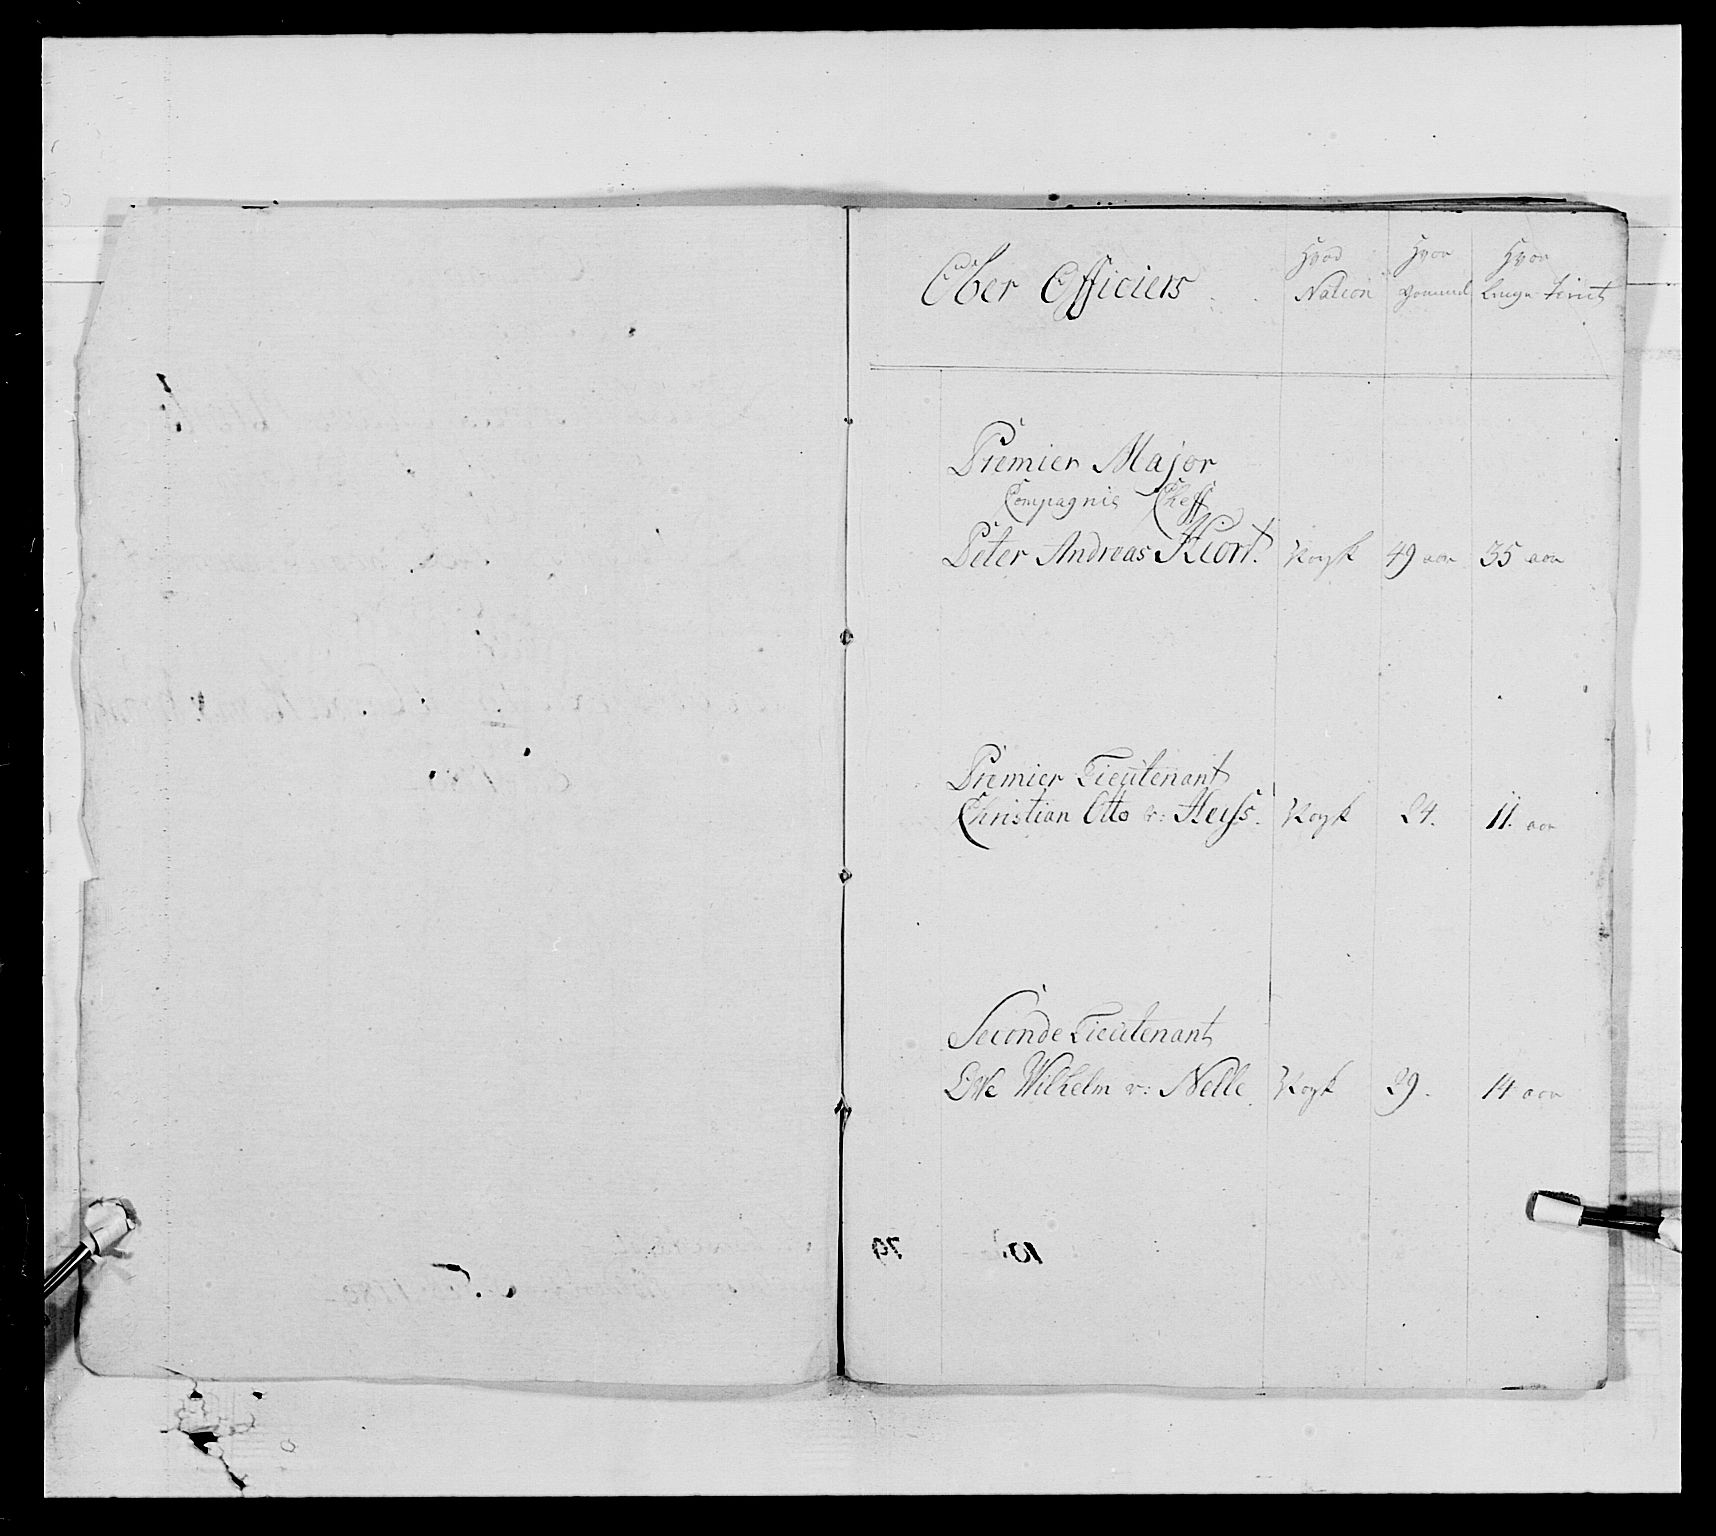 Ober Officiers
Hvad Nation
Hvor gammel
Hvor lenge tient
Premier Major
Compagnie Cheff
Peter Andreas Hiort. Norsk 49 aar 35 aar
Premier Lieutenant
Christian Otto v: Heiss. Norsk 24. 11. aar
Seconde Lieutenant
Wilhelm v: Nelle Norsk 29. 14 aar